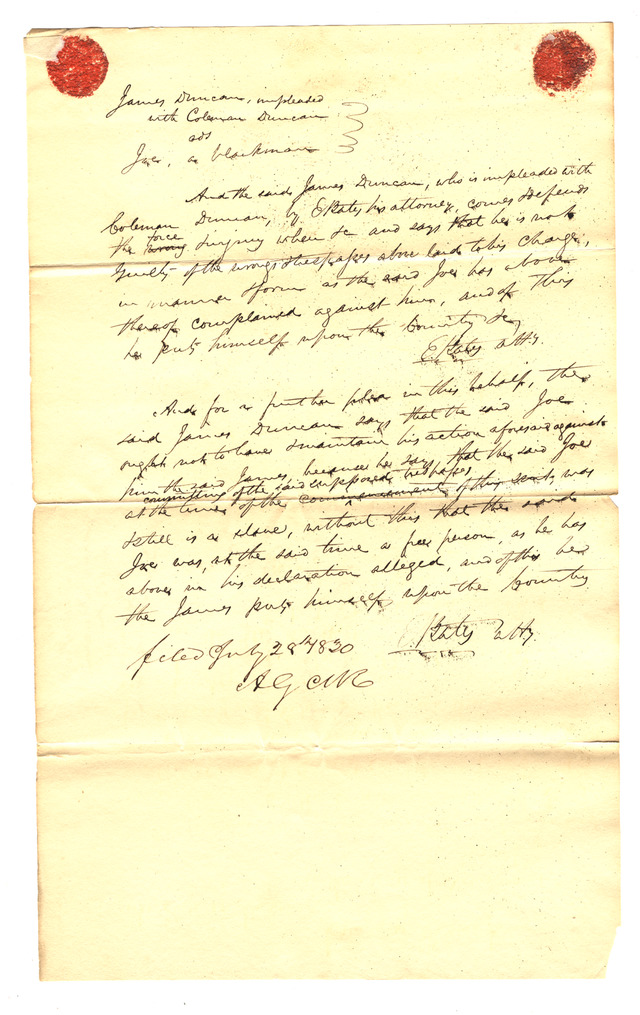 James Duncan, impleaded
with Coleman Duncan
ads
Joe, a blackman
And the said James Duncan, who is impleaded with
Coleman Duncan, by E Bates his attorney, comes & defends
the wrong force & injury when &c and says that he is not
Guilty of the wrongs & trespasses above laid to his charge,
in manner & form as the said Joe has above
thereof complained against him, and of this
he puts himself upon the Country &c
E Bates atty.
And for a further plea in this behalf, the
said James Duncan says that the said Joe
ought not to have & maintain his action aforesaid against
him the said James, because he says that the said Joe
committing of the said supposed trespasses
at the time of the commencement of this suit, was
& still is a slave, without this that the said
Joe was, at the said time a free person, as he has
above in his declaration alleged, and of this he
the James puts himself upon the Country
Bates atty.
filed July 28th 1830